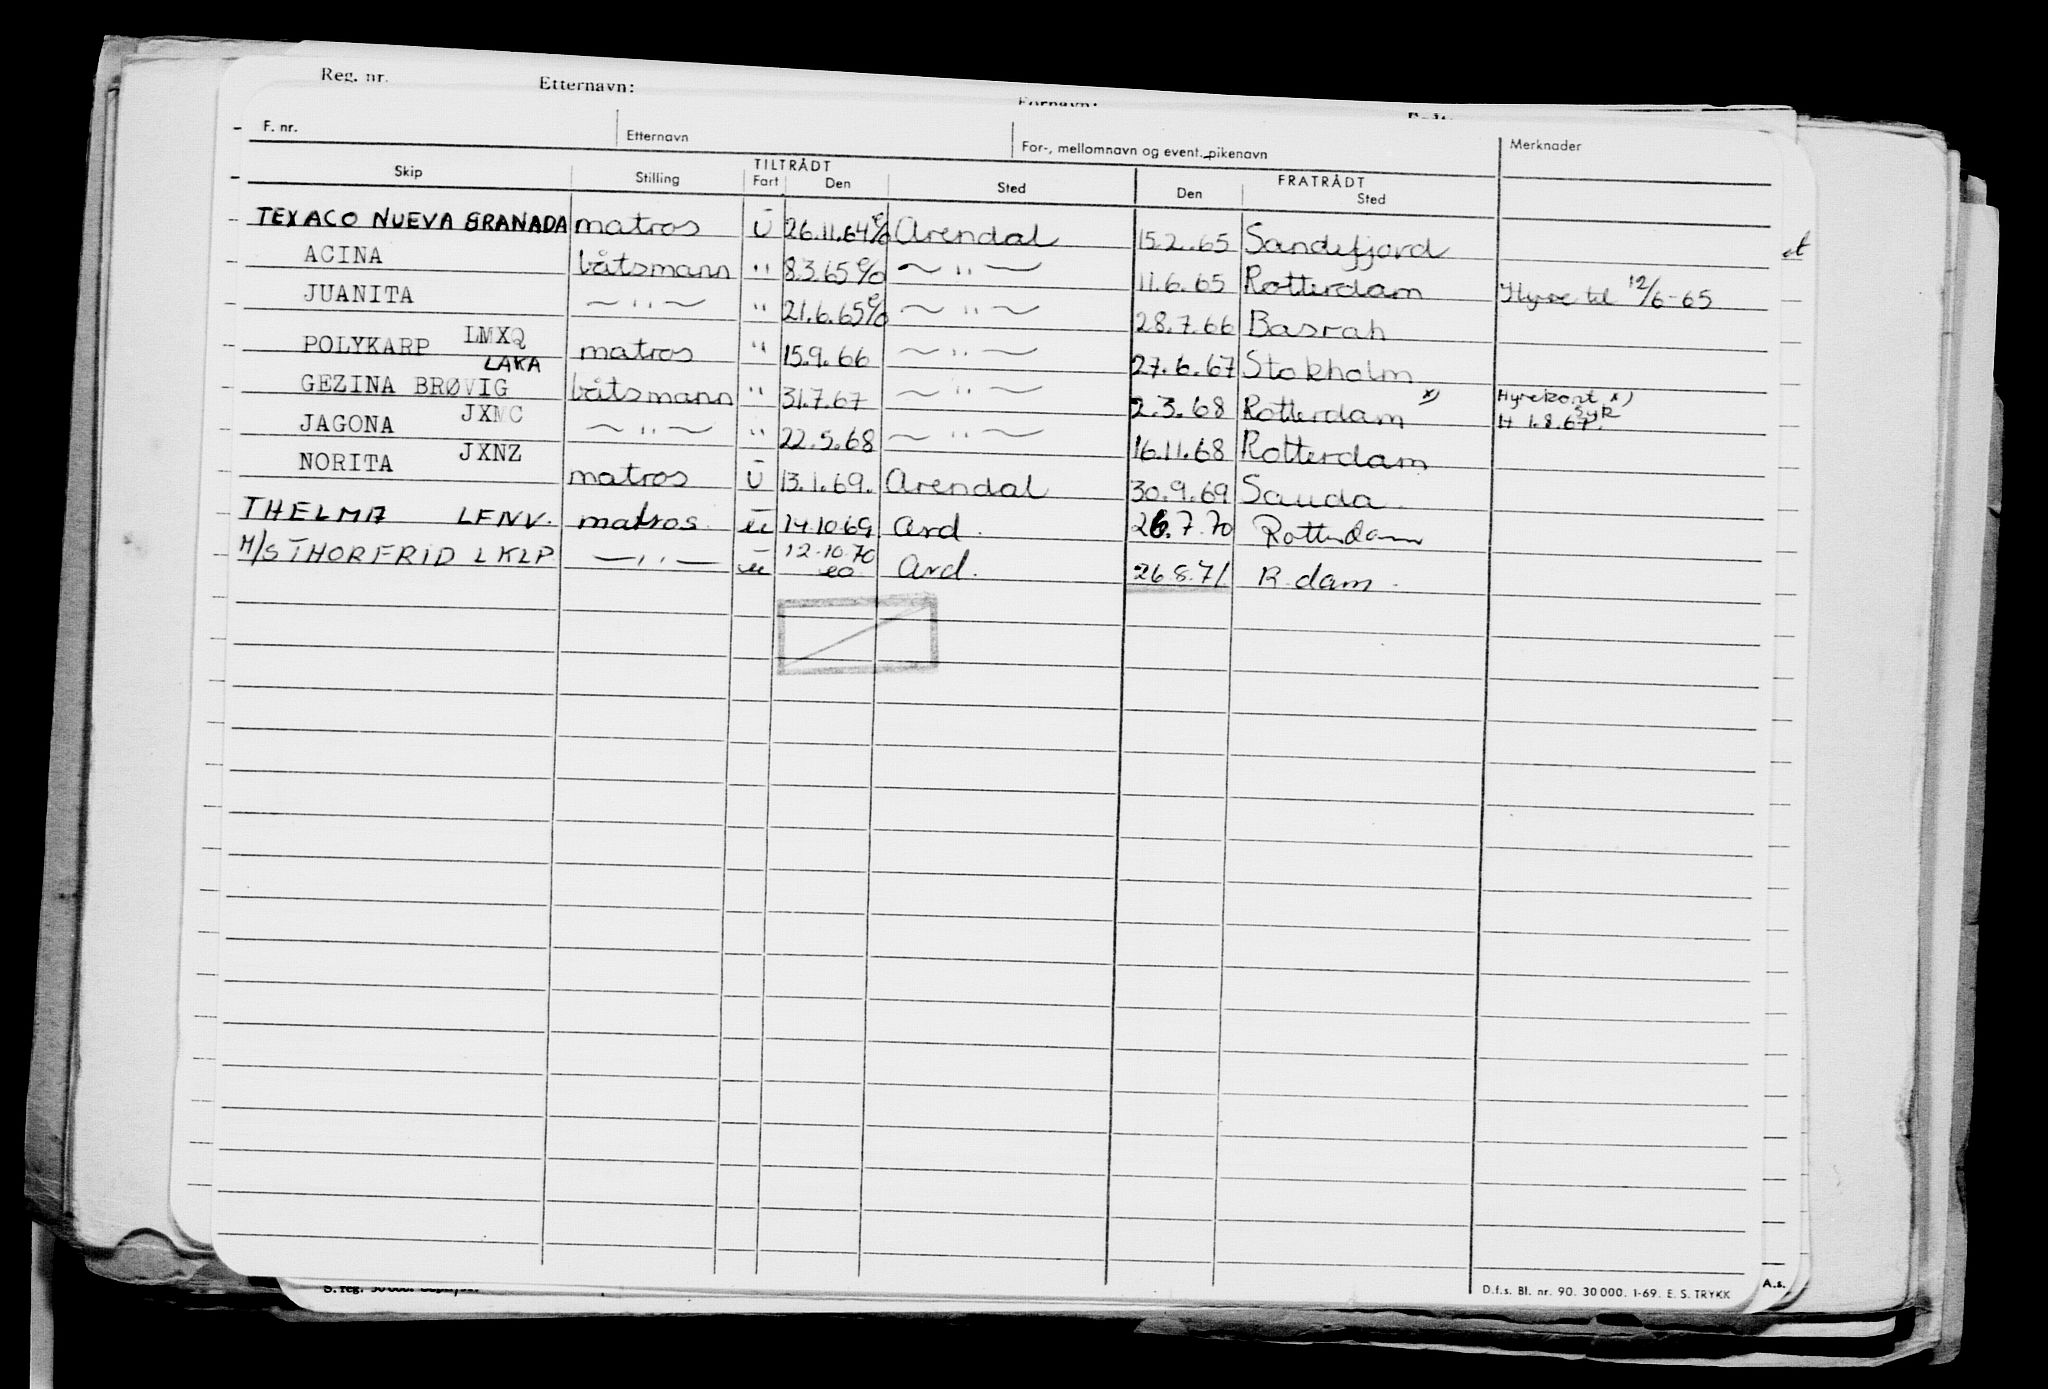 Reg. nr. Etternavn: Fornavn:
F. nr. Etternavn For-, mellomnavn og event. pikenavn Merknader
TILTRÅDT FRATRÅDT
Skip Stilling Fart Den Sted Den Sted
TEXACO NUEVA GRANADA matros Ū 26.11.64 e/o Arendal 15.2.65 Sandefjord
ACINA båtsmann " 8.3.65 e/o ~ " ~ 11.6.65 Rotterdam Hyre til 12/6-65
JUANITA ~ " ~ " 21.6.65 e/o ~ " ~ 28.7.66 Basrah
POLYKARP LMXQ matros " 15.9.66 ~ " ~ 27.6.67 Stokholm
LAKA
GEZINA BRØVIG båtsmann " 31.7.67 ~ " ~ 2.3.68 Rotterdam x) Hyrekont x)
H 1.8.67. Syk
JAGONA JXMC ~ " ~ " 22.5.68 ~ " ~ 16.11.68 Rotterdam
NORITA JXNZ matros Ū 13.1.69. Arendal 30.9.69 Sauda.
THELMA LFNV. matros. ū 14.10.69 Ard. 26.7.70 Rotterdam
M/S THORFRID LKLP — " — ū 12.10.70 eo Ard. 26.8.71 R.dam.
et
D.f.s. Bl. nr. 90. 30 000. 1-69. E. S. TRYKK
A.s.